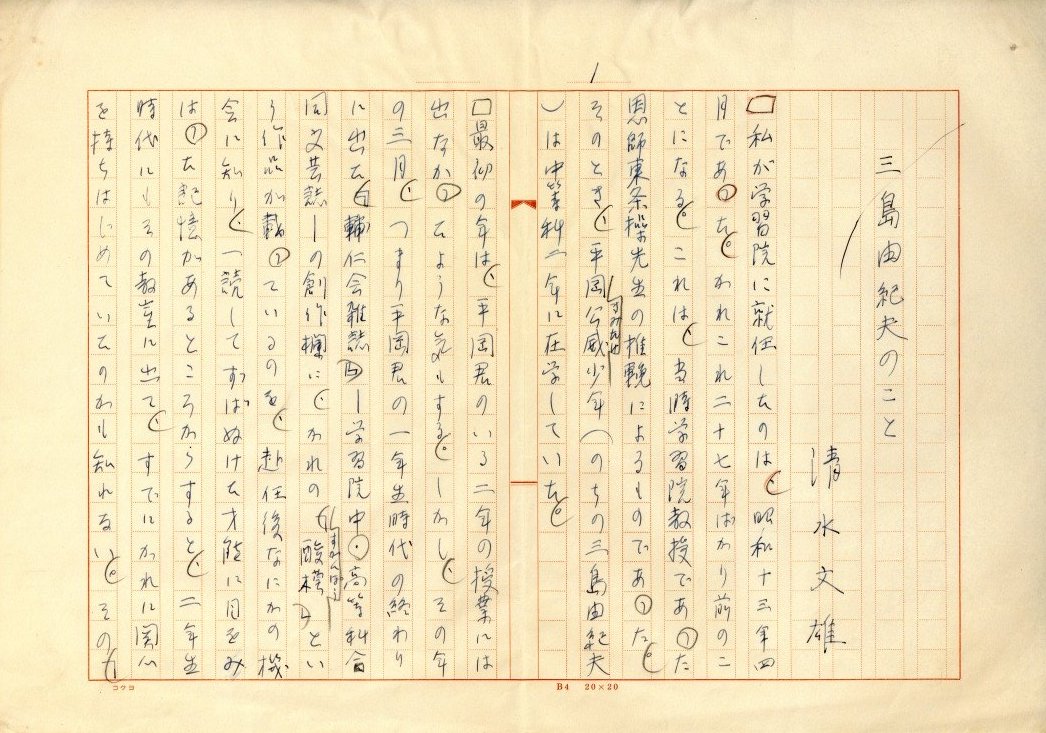 1
三島由紀夫のこと
清水文雄
私が学習院に就任したのは、昭和十三年四
月であった。かれこれ二十七年ばかり前のこ
とになる。これは、当時学習院教授であった
恩師東条操先生の推輓によるものであった。
そのとき、平岡公威少年(のちの三島由紀夫
きみたけ
)は中等科二年に在学していた。
最初の年は、平岡君のいる二年の授業には
出なかったような気もする。しかし、その年
の三月、つまり平岡君の一年生時代の終わり
に出た『輔仁会雑誌』ー学習院中・高等科合
同文芸誌ーの創作欄に、かれの「酸模」とい
すかんぽう
う作品が載っているのを、赴任後なにかの機
会に知り、一読してずばぬけた才能に目をみ
はった記憶があるところからすると、二年生
時代にもその教室に出て、すでにかれに関心
を持ちはじめていたのかも知れない。その
コクヨ
B4 20×20